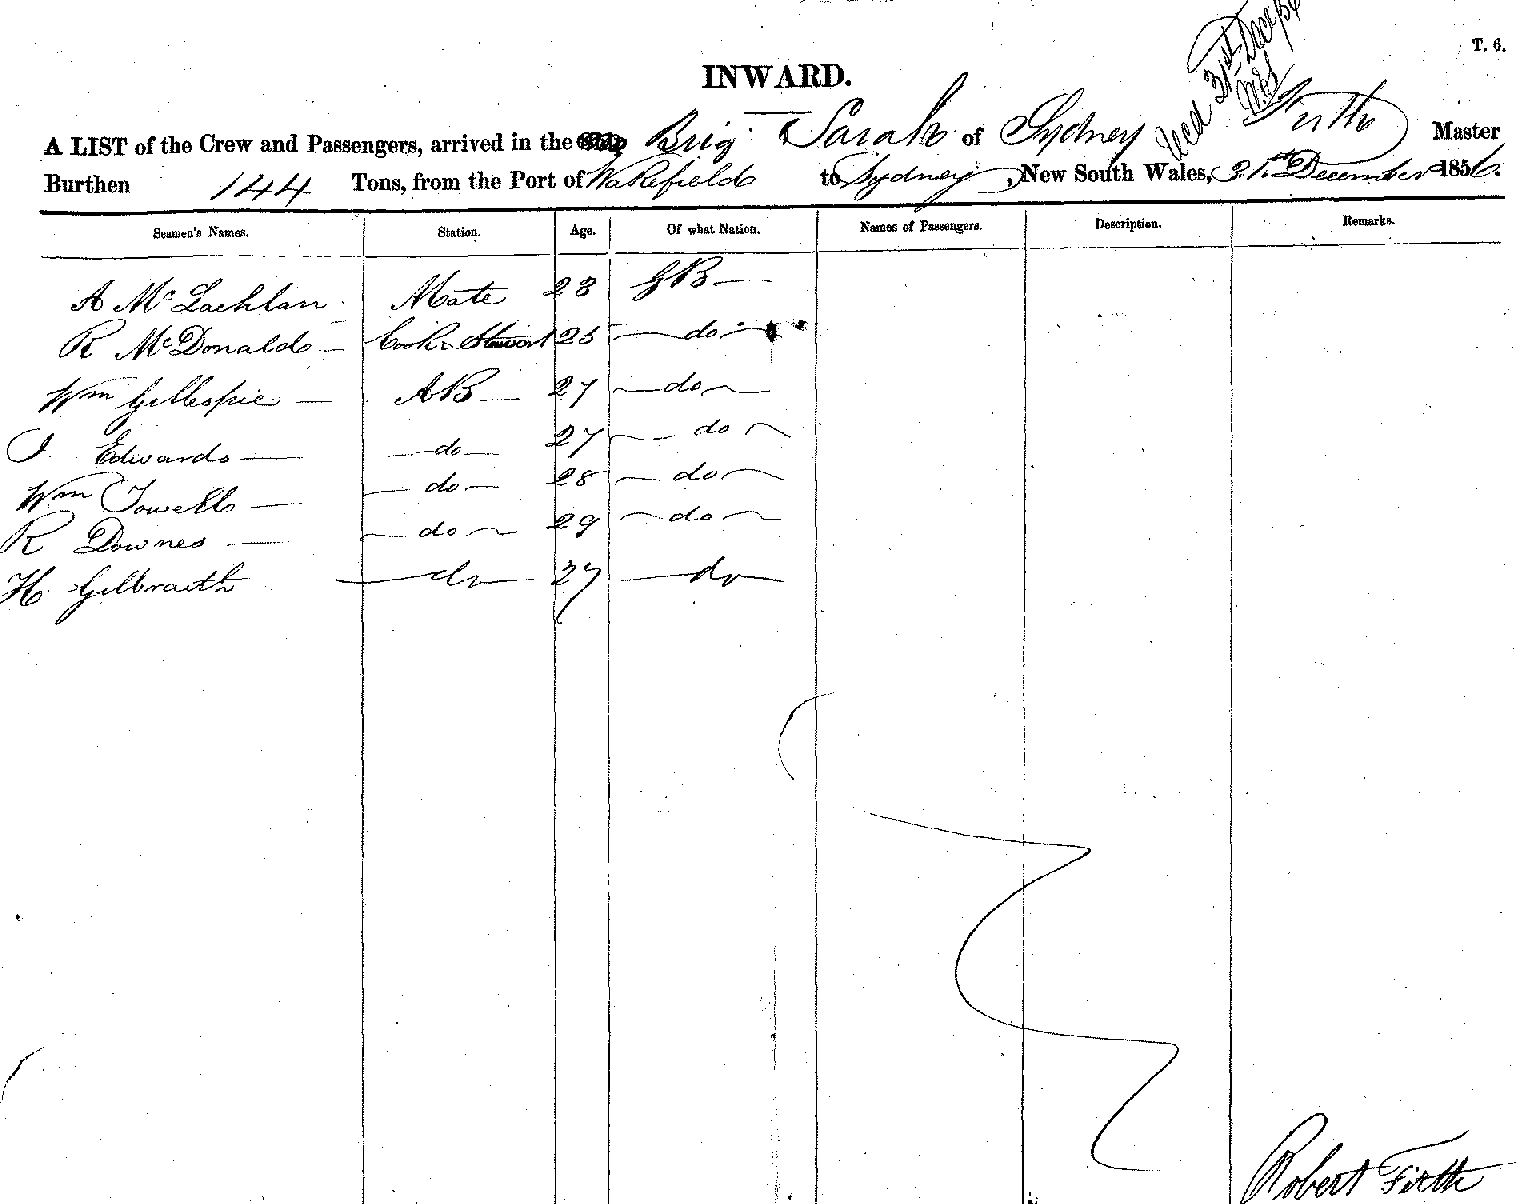 T. 6.
Recd 31st Decr 56
INWARD.
A LIST of the Crew and Passengers, arrived in the Ship Brig Sarah of Sydney Firth Master
Burthen 144 Tons, from the Port of Wakefield to Sydney, New South Wales, 31st December 1856.
Seamen's Names. Station. Age. Of what Nation. Names of Passengers. Description. Remarks.
A McLachlan Mate 28 GB
R McDonald Cook & Steward 25 do
Wm Gillespie AB 27 do
J. Edwards do 27 do
Wm Towells do 28 do
R Downes do 29 do
H Gilbraith do 27 do
Robert Firth